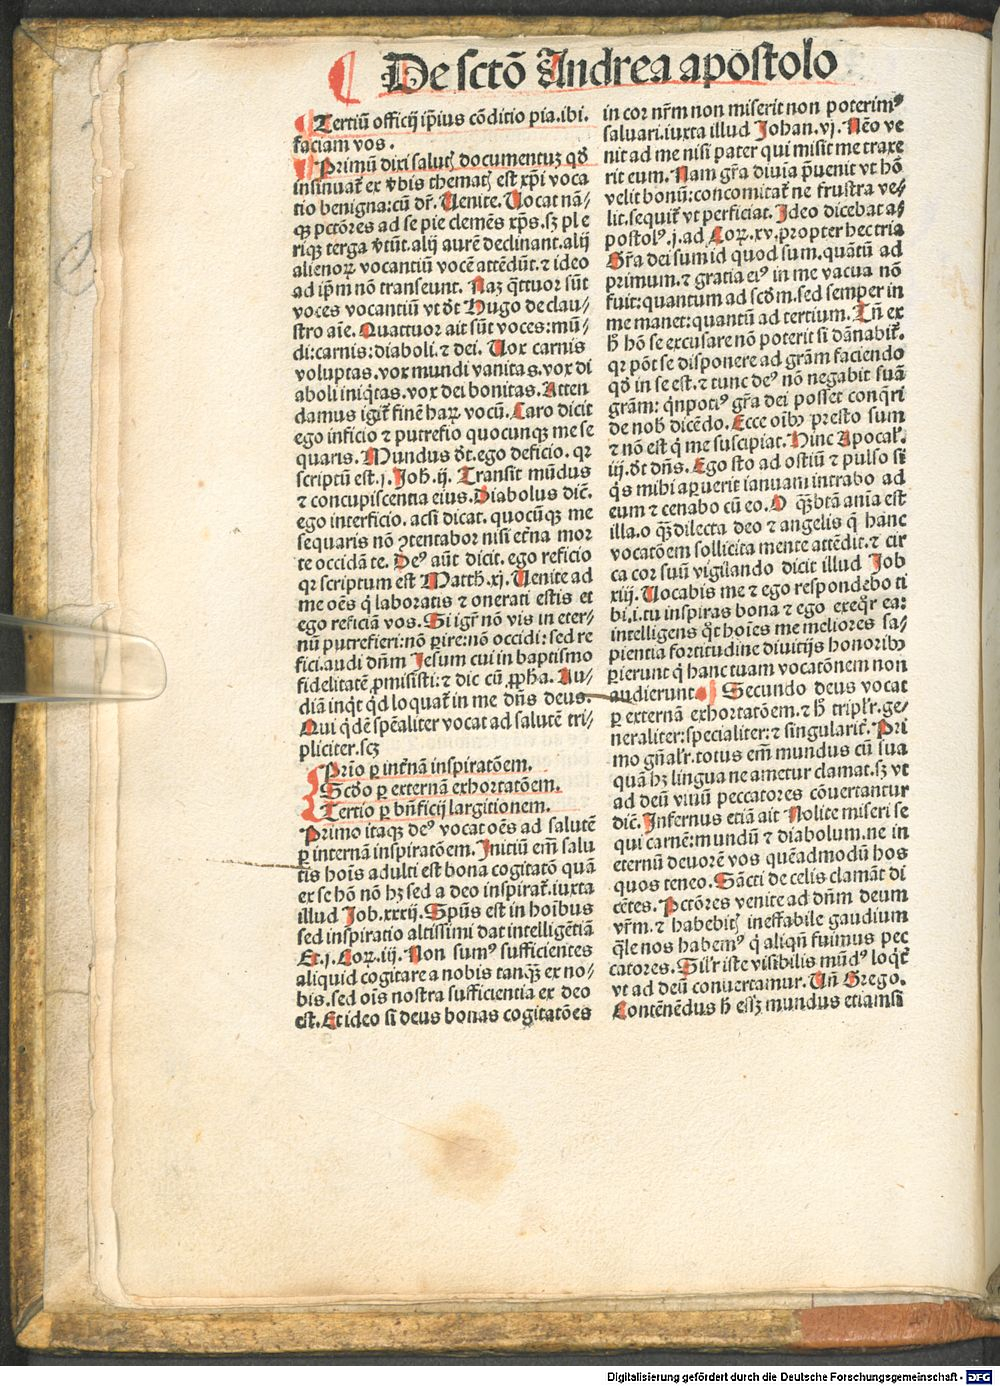 De sctō Andrea apostolo
Tertiū officij ip̄ius cōditio pia.ibi.
faciam vos.
Primū dixi salutꝭ documentuꝫ qđ
insinuat᷑ ex v̄bis thematꝭ est xp̄i voca
tio benigna:cū dr̄.Uenite.Uocat nā-
qꝫ pctōres ad se pie clemēs xp̄s.sꝫ ple
riqꝫ terga v̄tūt.alij aurē declinant.alij
alienoꝝ vocantiū vocē attēdūt.⁊ ideo
ad ip̄m nō transeunt. Naꝫ q̄ttuor sūt
voces vocantiū vt d̄t Hugo de clau-
stro aīe. Quattuor ait sūt voces:mū-
di:carnis:diaboli.⁊ dei. Uox carnis
voluptas.vox mundi vanitas.vox di
aboli iniq̇tas.vox dei bonitas.Atten
damus igit᷑ finē haꝝ vocū.Caro dicit
ego inficio ⁊ putrefio quocunqꝫ me se
quaris.Mundus d̄t.ego deficio.qꝛ
scriptū est.j.Joh.ij.Transit mūdus
⁊ concupiscentia eius.Diabolus dic̄.
ego interficio.acsi dicat.quocūqꝫ me
sequaris nō ꝯtentabor nisi et̄na mor
te occidā te. Deꝰ aūt dicit.ego reficio
qꝛ scriptum est Matth̄.xj.Uenite ad
me oēs q̇ laboratis ⁊ onerati estis et
ego reficiā vos.Si igr̄ nō vis in eter-
nū putrefieri:nō ꝑire:nō occidi:sed re
fici.audi dn̄m Jesum cui in baptismo
fidelitatē ꝓmisisti:⁊ dic cū ꝓph̄a.Au-
diā inq̇t qd loquat᷑ in me dn̄s deus.
Qui q̇dē spēaliter vocat ad salutē tri-
pliciter.scꝫ
Prīo ꝑ int̄nā inspiratōem.
Scd̄o ꝑ externā exhortatōem.
Tertio ꝑ bn̄ficij largitionem.
Primo itaqꝫ deꝰ vocat oēs ad salutē
ꝑ internā inspiratōem.Jnitiū em̄ salu
tis hoīs adulti est bona cogitatō quā
ex se hō nō hꝫ sed a deo inspirat᷑.iuxta
illud Job.xxxij.Spūs est in hoībus
sed inspiratio altissimi dat intelligētiā
Et.j.Coꝝ.iij.Non sumꝰ sufficientes
aliquid cogitare a nobis tanqꝫ̄ ex no-
bis.sed oīs nostra sufficientia ex deo
est.Et ideo si deus bonas cogitatōes
in cor nr̄m non miserit non poterimꝰ
saluari.iuxta illud Johan.vj.Nēo ve
nit ad me nisi pater qui misit me traxe
rit eum.Nam gr̄a diuia p̄uenit vt hō
velit bonū:concomitat᷑ ne frustra ve-
lit.sequit᷑ vt perficiat.Jdeo dicebat a-
postolꝰ.j.ad Coꝝ.xv.propter hec tria
Gr̄a dei sum id quod sum.quātū ad
primum.⁊ gratia eiꝰ in me vacua nō
fuit:quantum ad scd̄m.sed semper in
me manet:quantū ad tertium.Tn̄ ex
h̄ hō se excusare nō poterit si dānabit᷑.
qꝛ pōt se disponere ad grām faciendo
qđ in se est.⁊ tunc deꝰ nō negabit suā
grām: q̇npotiꝰ gr̄a dei posset conq̄ri
de nob dicēdo.Ecce oībꝫ presto sum
⁊ nō est q̇ me suscipiat.Hinc Apocal᷑.
iij.d̄t dn̄s.Ego sto ad ostiū ⁊ pulso si
q̇s mihi aꝑuerit ianuam intrabo ad
eum ⁊ cenabo cū eo.O qꝫ̄ btā anīa est
illa.o qꝫ̄ dilecta deo ⁊ angelis q̄ hanc
vocatōem sollicita mente attēdit.⁊ cir
ca cor suū vigilando dicit illud Job
xiij.Uocabis me ⁊ ego respondebo ti
bi.i.tu inspiras bona ⁊ ego exeqr̄ ea:
intelligens q̇t hoīes me meliores sa-
pientia fortitudine diuitijs honoribꝫ
ꝑierunt q̇ hanc tuam vocatōnem non
audierunt. Secundo deus vocat
ꝑ externā exhortatōem.⁊ h̄ tripl᷑r.ge-
neraliter:specialiter:⁊ singularit᷑.Pri
mo gn̄al᷑r.totus em̄ mundus cū sua
quā hꝫ lingua ne ametur clamat.sꝫ vt
ad deū viuū peccatores cōuertantur
dic̄.Jnfernus etiā ait Nolite miseri se
qui carnē:mundū ⁊ diabolum.ne in
eternū deuorē vos quēadmodū hos
quos teneo.Sācti de celis clamāt di
cētes.Pctōres venite ad dn̄m deum
vr̄m.⁊ habebitꝭ ineffabile gaudium
q̄le nos habemꝰ q̇ aliqn̄ fuimus pec
catores.Sil᷑r iste visibilis mūdꝰ loq̇t᷑
vt ad deū conuertamur.Un̄ Grego.
Contēnēdus h̄ esseꝫ mundus etiamsi
Digitalisierung gefördert durch die Deutsche Forschungsgemeinschaft - DFG